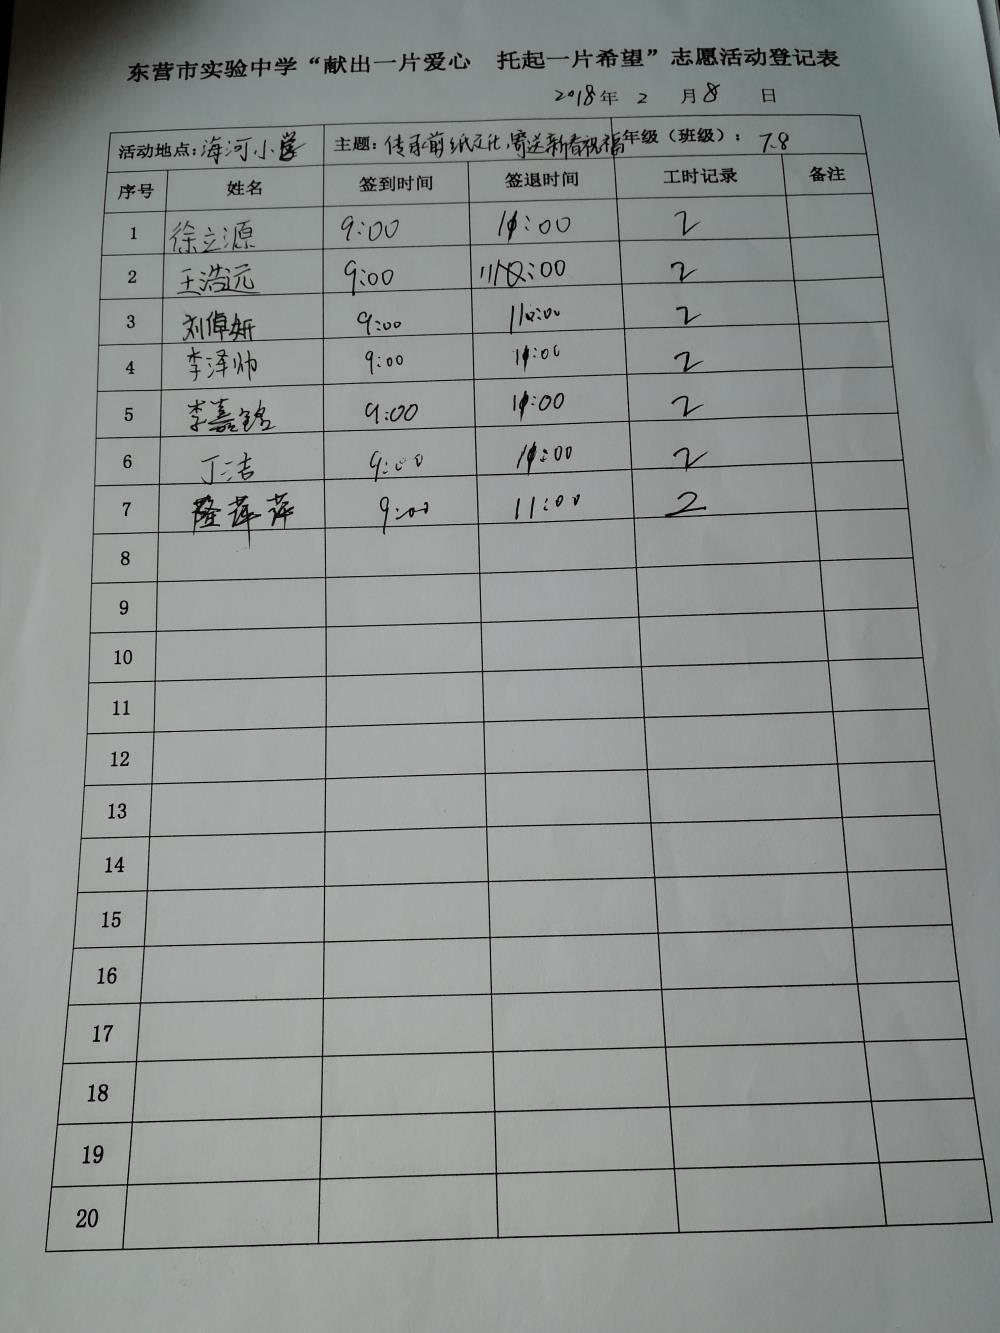 东营市实验中学“献出一片爱心 托起一片希望”志愿活动登记表
2018年 2 月 8 日
活动地点：海河小学 主题：传承剪纸文化，寄送新春祝福 年级（班级）：7.8
序号 姓名 签到时间 签退时间 工时记录 备注
1 徐立源 9:00 11:00 2
2 王浩远 9:00 :00 2
3 刘倬妍 9:00 11:00 2
4 李泽帅 9:00 11:00 2
5 李嘉铭 9:00 11:00 2
6 丁洁 9:00 11:00 2
7 隆萍萍 9:00 11:00 2
8
9
10
11
12
13
14
15
16
17
18
19
20